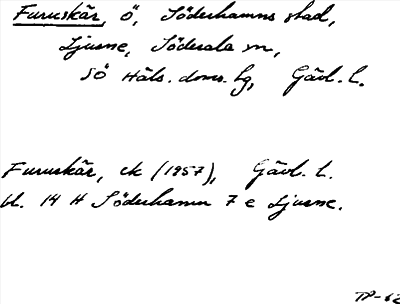 Furuskär, ö, Söderhamns stad,
Ljusne, Söderala sn,
SÖ Häls. doms. hg, Gävl. l.
Furuskär, ek (1957), Gävl. l.
bl. 14 H Söderhamn 7 e Ljusne.
TP-62